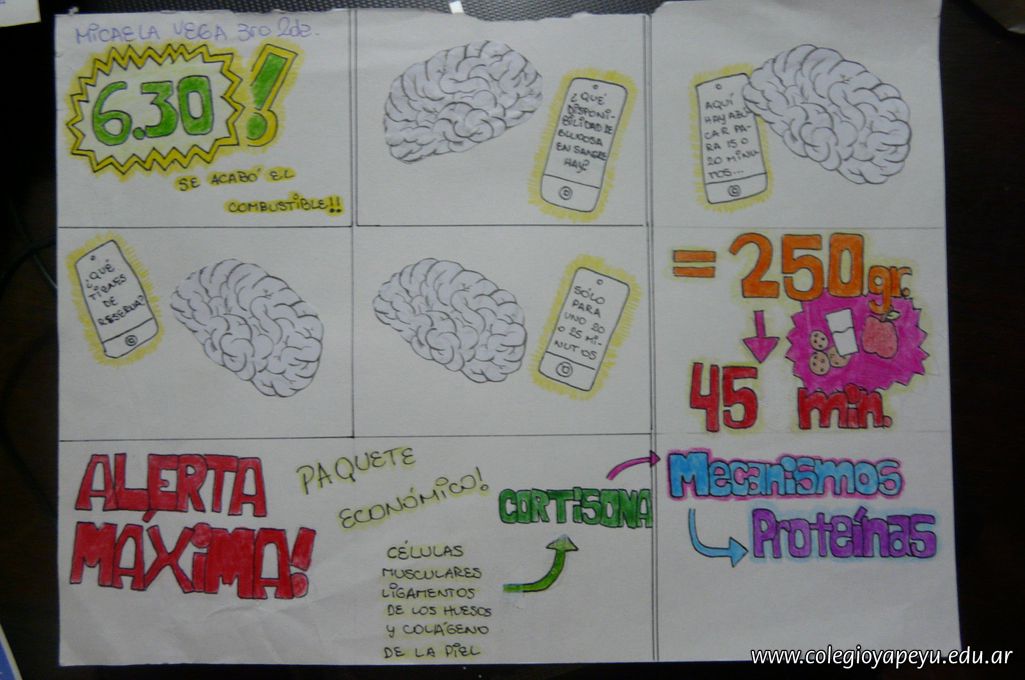 MICAELA VEGA 3ro 2da.
6.30!
SE ACABÓ EL
COMBUSTIBLE!!
¿QUÉ
DISPONI-
BILIDAD DE
GLUCOSA
EN SANGRE
HAY?
AQUÍ
HAY AZÚ
CAR PA-
RA 15 O
20 MINU-
TOS...
¿QUÉ
TIENES
DE
RESERVA?
SÓLO
PARA
UNO 20
O 25 MI-
NUTIOS
= 250gr.
45 min.
ALERTA
MÁXIMA!
PAQUETE
ECONÓMICO!
CÉLULAS
MUSCULARES
LIGAMENTOS
DE LOS HUESOS
Y COLÁGENO
DE LA PIEL
CORTISONA
Mecanismos
Proteínas
www.colegioyapeyu.edu.ar